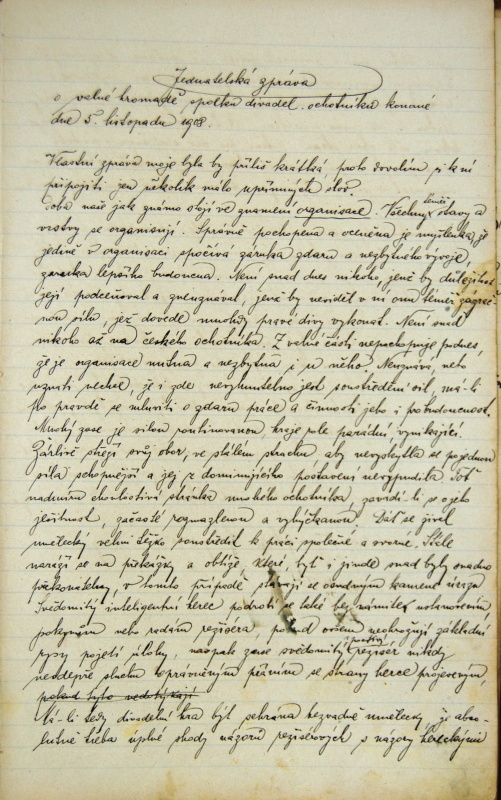 Jednatelská zpráva
o valné hromadě spolku divadel. ochotníků konané
dne 5. listopadu 1908.
Vlastní zpráva moje byla by příliš krátká proto dovolím si k ní
připojiti jen několik málo upřímných slov.
Doba naše jak známo stojí ve znamení organisace. Všechny téměř stavy a
vrstvy se organisují. Správně pochopena a oceněna je myšlenka, že
jedině v organisaci spočívá záruka zdaru a nezbytného vývoje,
záruka lepšího budoucna. Není snad dnes nikoho, jenž by důležitost
její podceňoval a neuznával, jenž by neviděl v ní onu téměř zázrač-
nou sílu, jež dovede mnohdy pravé divy vykonat. Není snad
nikoho až na českého ochotníka. Z valné části nepochopuje podnes,
že je organisace nutna a nezbytna i u něho. Neuznává, nebo
uznati nechce, že i zde nevyhnutelno jest soustředění sil, má-li
po pravdě se mluviti o zdaru práce a činnosti jeho i pro budoucnost.
Mnohý zase je silou routinovanou hraje role parádní, vynikající.
Žárlivě střeží svůj obor, ve stálém strachu, aby nevyskytla se pojednou
síla schopnější a jej z dominujícího postavení nevypudila. Toť
nadmíru choulostivá stránka mnohého ochotníka,
ješitnost, začasté rozmazlenou a vyhýčkanou. Dáť se živel
umělecký velmi těžko soustředit k práci společné a svorné. Stále
naráží se na překážky a obtíže, které, byť i jinde snad byly snadno
překonatelny, v tomto případě stávají se osudným kamenem úrazu.
Svědomitý inteligentní herec podrobí se také bez námitek
pokynům nebo radám režiséra, pokud ovšem neohrožují základní
rysy pojetí úlohy, naopak zase svědomitý režisér nikdy
neodepře sluchu oprávněným přáním se strany herce projeveným,
Má-li tedy divadelní hra být sehrána bezvadně umělecky, je abso-
lutně třeba úplné shody názorů režisérových s názory hereckými